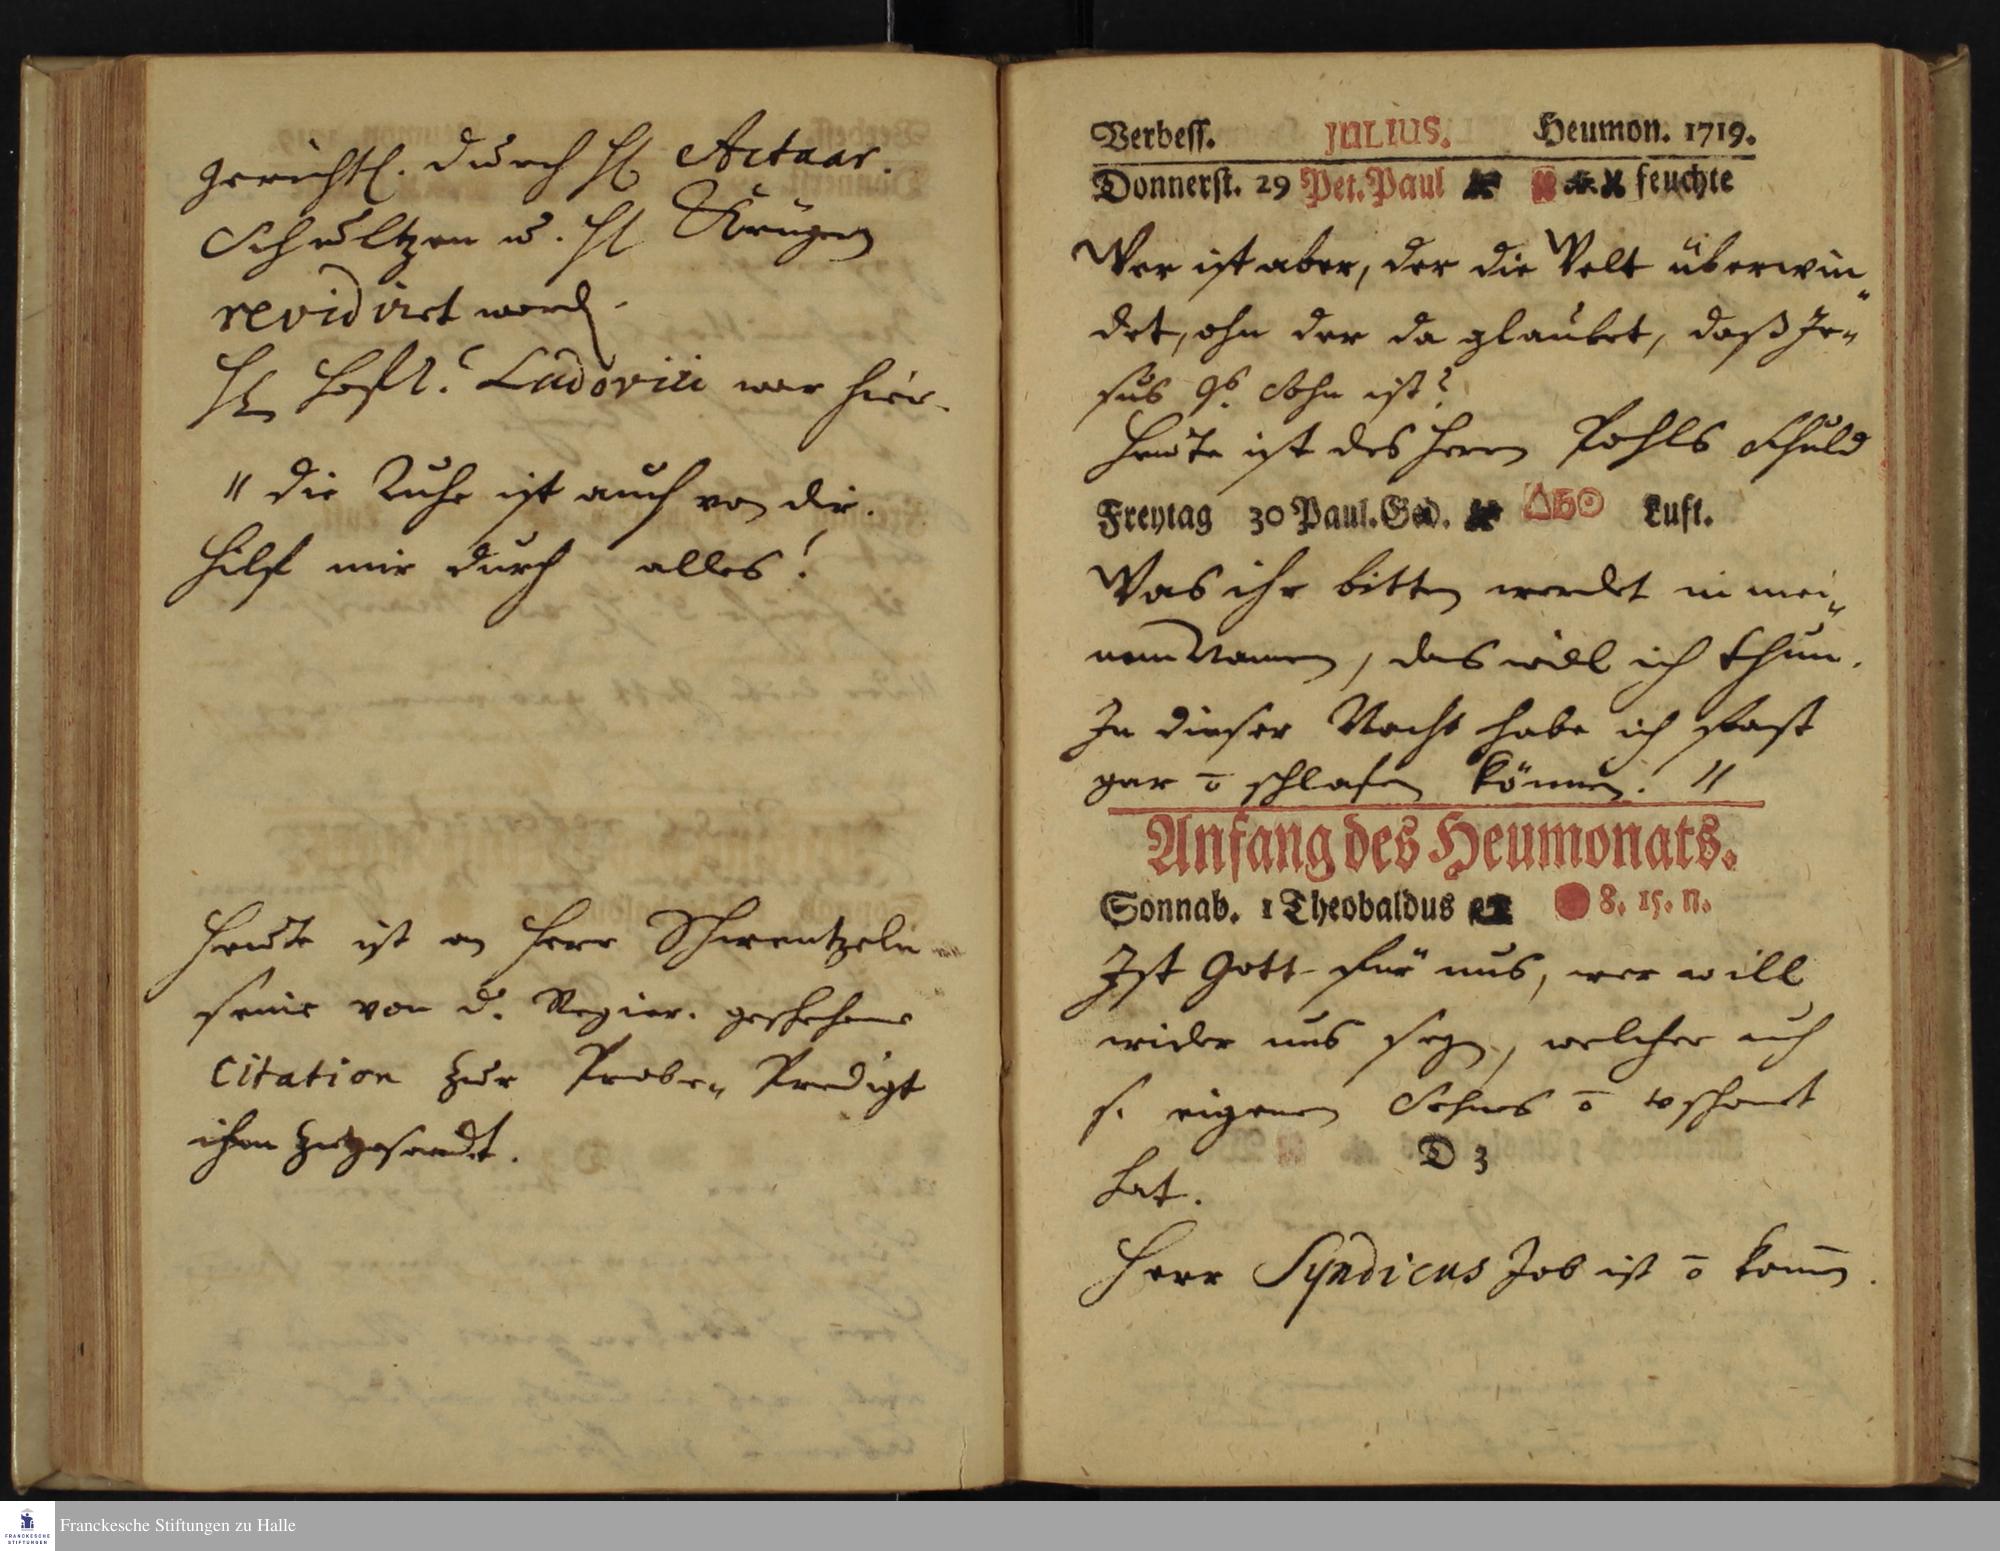 gerichtl. durch H. Actuar.
Schultzen u. H. Krügern
revidiret word.
H. Hoffr. Ludovici war hier.
" die Ruhe ist auch von dir.
Hilf mir durch alles!
Heute ist an Herr Schwentzeln
seine von d. Regier. geschehene
Citation zur Probe-Predigt
ihm zugesandt.
Verbess. JULIUS. Heumon. 1719.
Donnerst. 29 Pet. Paul feuchte
Wer ist aber, der die Welt überwin-
det, ohn der da glaubet, daß Je-
sus Gs. Sohn ist?
Heute ist des Herrn Pohls Schuld
Freytag 30 Paul. Ged. △♄☉ Luft.
Was ihr bitten werdet in mei-
nem Namen, das will ich thun.
In dieser Nacht habe ich fast
gar ō schlafen können. "
Anfang des Heumonats.
Sonnab. 1 Theobaldus 8. 15. n.
Ist Gott für uns, wer will
wider uns seyn, welcher auch
s. eigenen Sohnes ō verschonet
D 3
hat.
Herr Syndicus Job ist ō kom̄en.
Franckesche Stiftungen zu Halle
FRANCKESCHE
STIFTUNGEN